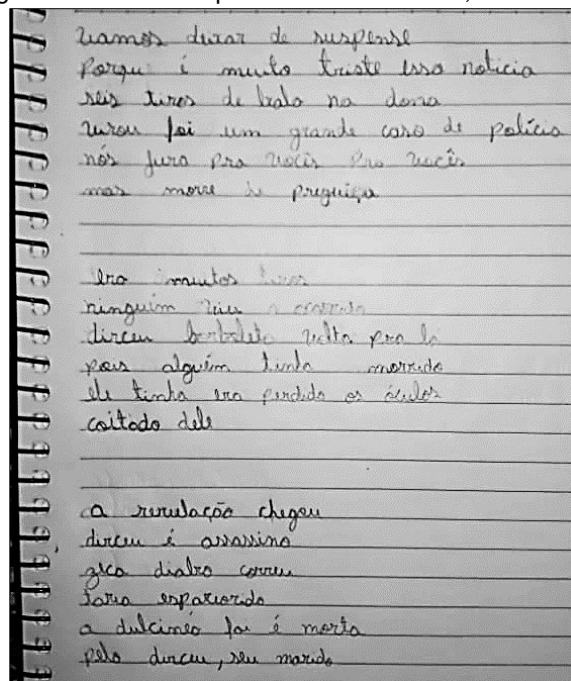 vamos dexar de suspense
Porque é muito triste essa noticia
seis tiros de bala na dona
virou foi um grande caso de polícia
nós jura pra vocês Pra vocês
mas morre de preguiça
era muitos tiros
ninguém viu o ocorrido
dirceu borboleta volta pra lá
pois alguém tinha morrido
ele tinha era perdido os óculos
coitado dele
a revelação chegou
dirceu é assassino
zeca diabo correu
tava espavorido
a dulcinéa foi é morta
pelo dirceu, seu marido